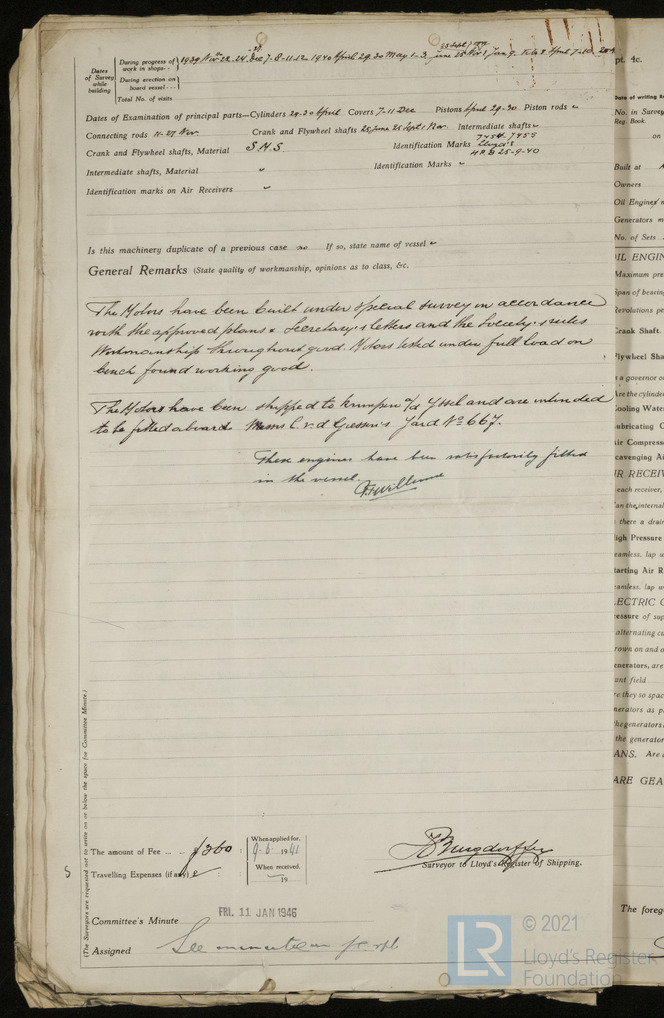 Dates of Survey while building
During progress of work in shops - - 1939 Nov 22. 24. Dec 7. 8. 11. 12 1940 April 29. 30 May 1. 3. June 25 Nov 1 Jan 9. Feb 8 April 7. 10.
During erection on board vessel - - -
Total No. of visits
Dates of Examination of principal parts—Cylinders 29.30 April Covers 7-11 Dec Pistons April 29-30. Piston rods
Connecting rods 11-27 Nov. Crank and Flywheel shafts 25 June 25 Sept 1 Nov. Intermediate shafts
Crank and Flywheel shafts, Material S.M.S. Identification Marks Lloyd's 7454. 7455
25-9-40
Intermediate shafts, Material Identification Marks
Identification marks on Air Receivers
Is this machinery duplicate of a previous case no If so, state name of vessel
General Remarks (State quality of workmanship, opinions as to class, &c.
The Motors have been built under special survey in accordance
with the approved plans & Secretary's letters and the Society's rules
Workmanship throughout good. Motors tested under full load on
bench found working good.
The Motors have been shipped to Krimpen a/d Yssel and are intended
to be fitted aboard Messrs C. v. d. Giessen's Yard No 667.
These engines have been satisfactorily fitted
in the vessel.
(The Surveyors are requested not to write on or below the space for Committee Minute.)
The amount of Fee .. .. £ 360 : When applied for, 9.6.1941
Travelling Expenses (if any) £ : When received, 19
Surveyor to Lloyd's Register of Shipping.
Committee's Minute FRI. 11 JAN 1946
Assigned See minute on
pt. 4c.
No. in Survey
Reg. Book.
on
Built at
Owners
Oil Engines
Generators
No. of Sets
OIL ENGIN
Maximum pre
Span of bearin
Revolutions pe
Crank Shaft.
Flywheel Sha
Cooling Wate
Lubricating
Air Compress
Scavenging Ai
each receiver,
there a drai
High Pressure
Starting Air R
ELECTRIC
alternating cu
ARE GEA
The foreg
LR
© 2021
Lloyd's Register
Foundation